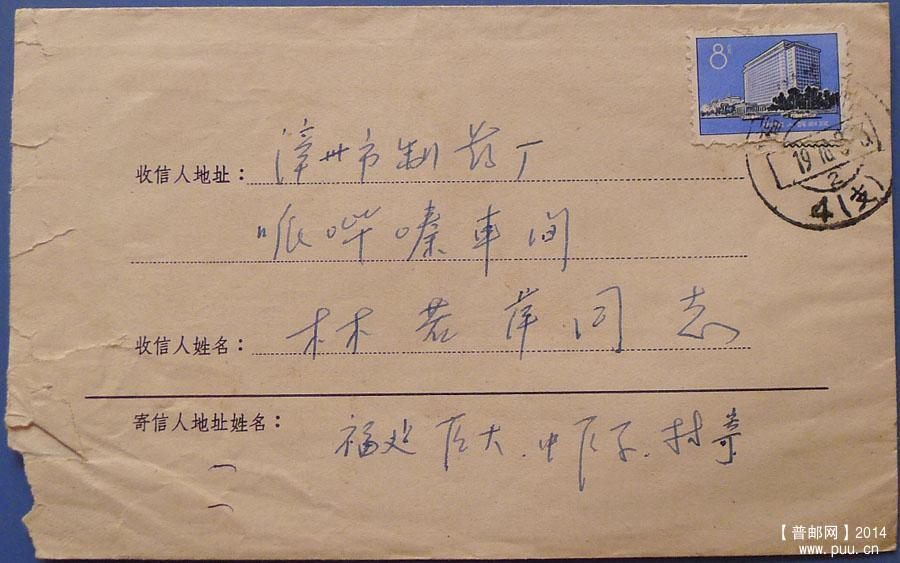 8分
19 78 9 3
2
4(支)
收信人地址：漳州市制药厂
哌哔嗪車间
收信人姓名：林若萍同志
寄信人地址姓名：福建医大.中医系.林寄
【普邮网】2014
www.puu.cn